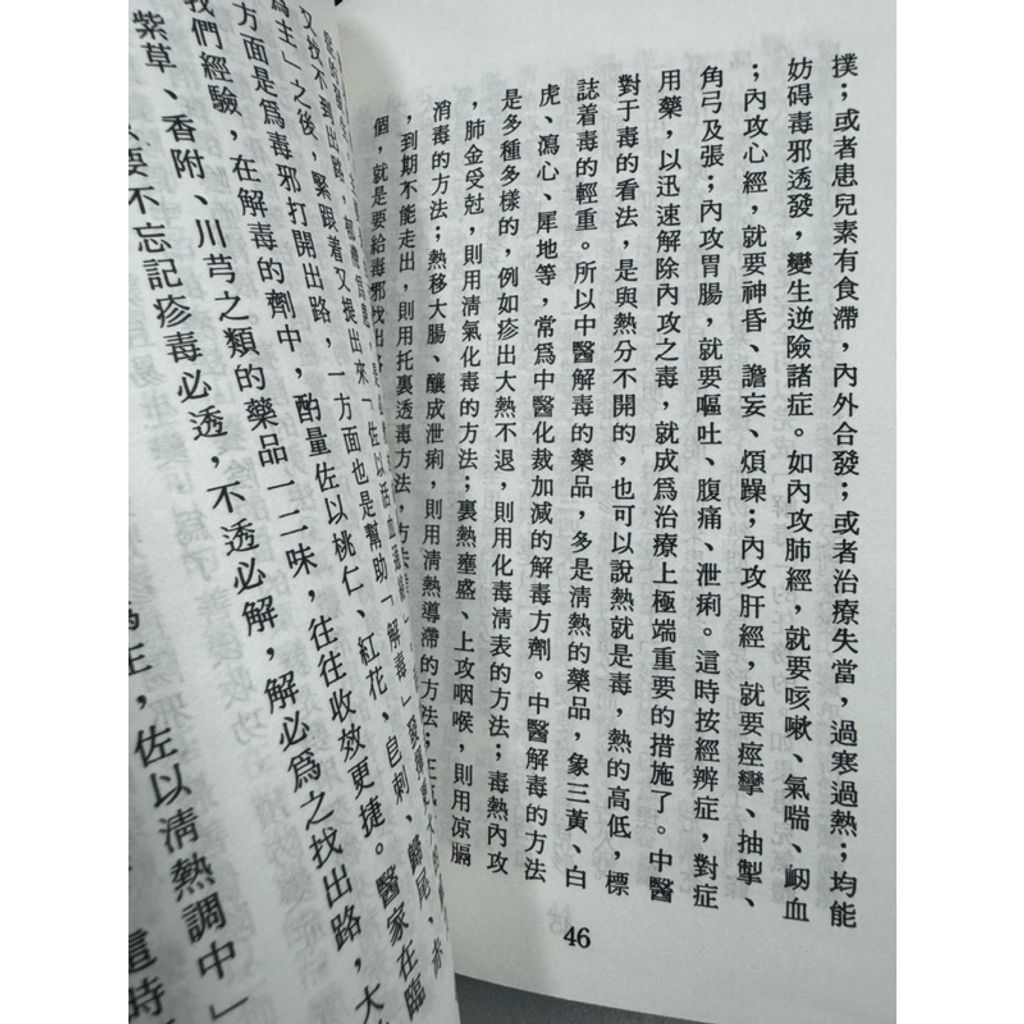 撲；或者患兒素有食滯，內外合發；或者治療失當，過寒過熱；均能
妨碍毒邪透發，變生逆險諸症。如內攻肺經，就要咳嗽、氣喘、衂血
；內攻心經，就要神昏、譫妄、煩躁；內攻肝經，就要痙攣、抽掣、
角弓及張；內攻胃腸，就要嘔吐、腹痛、泄痢。這時按經辨症，對症
用藥，以迅速解除內攻之毒，就成爲治療上極端重要的措施了。中醫
對于毒的看法，是與熱分不開的，也可以說熱就是毒，熱的高低，標
誌着毒的輕重。所以中醫解毒的藥品，多是淸熱的藥品，象三黃、白
虎、瀉心、犀地等，常爲中醫化裁加減的解毒方劑。中醫解毒的方法
是多種多樣的，例如疹出大熱不退，則用化毒淸表的方法；毒熱內攻
，肺金受尅，則用淸氣化毒的方法；裏熱壅盛、上攻咽喉，則用凉膈
消毒的方法；熱移大腸、釀成泄痢，則用淸熱導滯的方法；正氣不
，到期不能走出，則用托裏透毒方法，方法
個，就是要給毒邪找出路
46
又找不到出路，
爲主」之後，緊跟着又提出來「佐以活血
方面是爲毒邪打開出路，一方面也是幫助「解毒」發揮
我們經驗，在解毒的劑中，酌量佐以桃仁、紅花，皂刺、歸尾，赤
紫草、香附、川芎之類的藥品一二味，往往收效更捷。醫家在臨
要不忘記疹毒必透，不透必解，解必爲之找出路，大
爲主，佐以淸熱調中」
這時